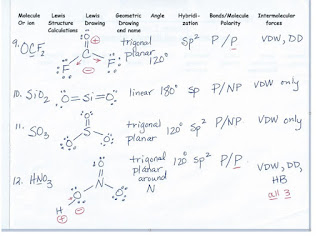 Molecule Or ion Lewis Structure Calculations Lewis Drawing Geometric Drawing and name Angle Hybridi- zation Bonds/Molecule Polarity Intermolecular forces
9. OCF2 O C F F trigonal planar 120° sp² P/P VDW, DD
10. SiO2 O=Si=O linear 180° sp P/NP VDW only
11. SO3 O S O O trigonal planar 120° sp² P/NP VDW only
12. HNO3 O N O O H trigonal planar around N 120° sp² P/P VDW, DD, HB all 3